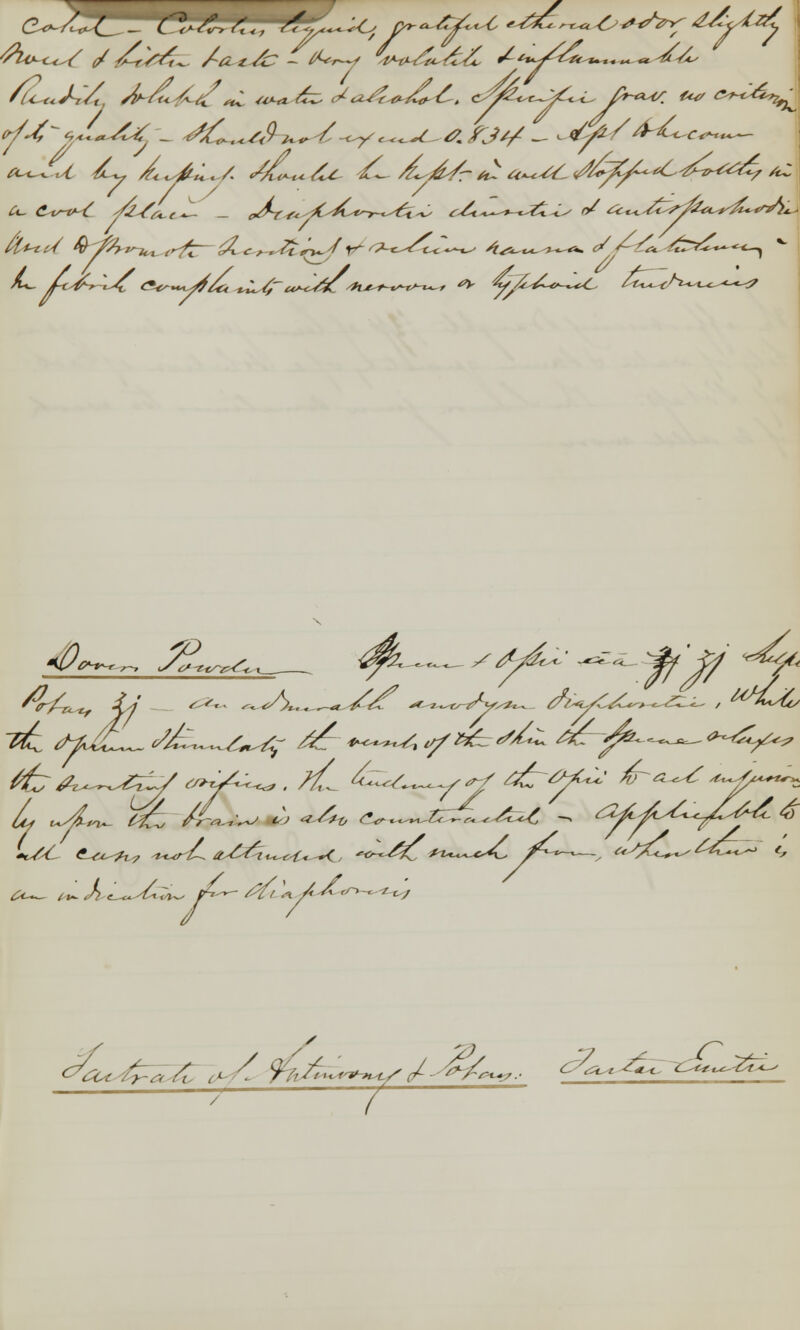 cohol — Colorless liquid, grateful ethereal odor, slightly
sweet & bitter taste — Very volatile & inflammable
Readily soluble in water & alcohol. Specific grav. no criterion
of its quality — Should not exceed 0.834 — Apt to become
acid by keeping. Should be kept in well stopped bottles in
a cool place — Diaphoretic diuretic & antispasmodic
Used to promote secretions & relieve nausea & flatulency &
In febrile complaints with nervous or typhoid tendencies
Dovers Powder — Ipecac & Opii āā ʒj ʒj Sulph
Potass ʒj — an admirable anodyne diaphoretic, While
the Opium stimulates the vessels of the skin the Ipecac relaxes
the secreting orifices. The tendency of the Opii to act injurious
ly upon the brain is also counteracted — Applicable to
all cases not attended with much fever, when there is
an indication for diaphoresis
Tartrate of Antimony & Potass: Tartar Emetic